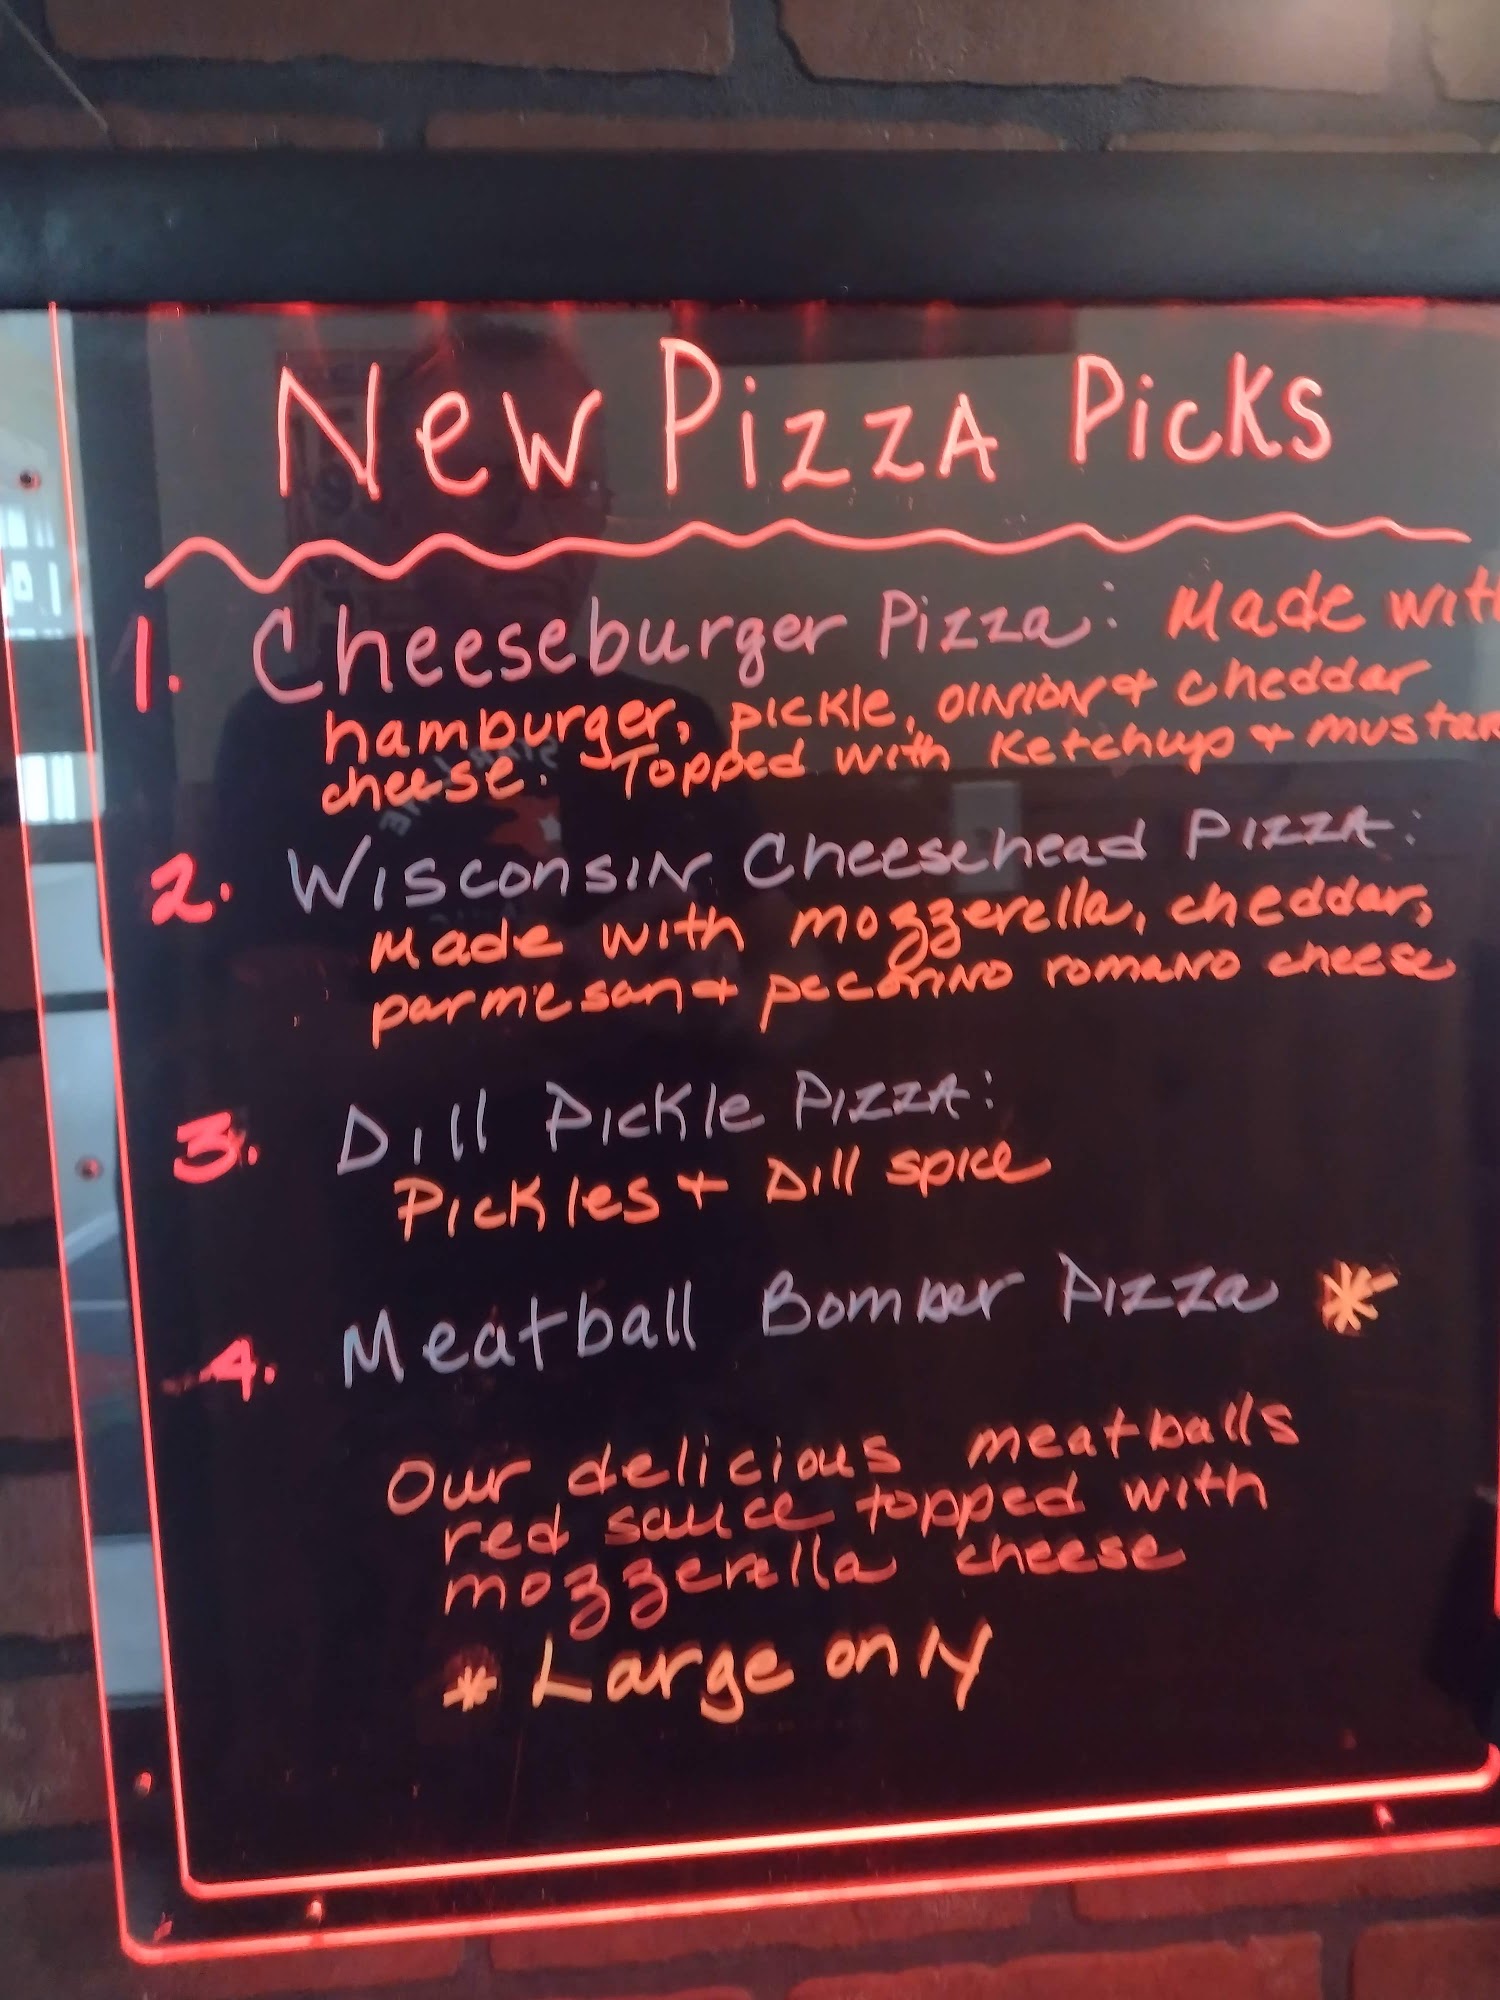 New Pizza Picks
1. Cheeseburger Pizza: Made with
hamburger, pickle, oinion & cheddar
cheese. Topped with Ketchup & mustar
2. Wisconsin Cheesehead Pizza:
Made with mozzerella, cheddar,
parmesan & pecorino romano cheese
3. Dill Pickle Pizza:
Pickles + Dill spice
4. Meatball Bomber Pizza *
Our delicious meatballs
red sauce topped with
mozzerella cheese
* Large only